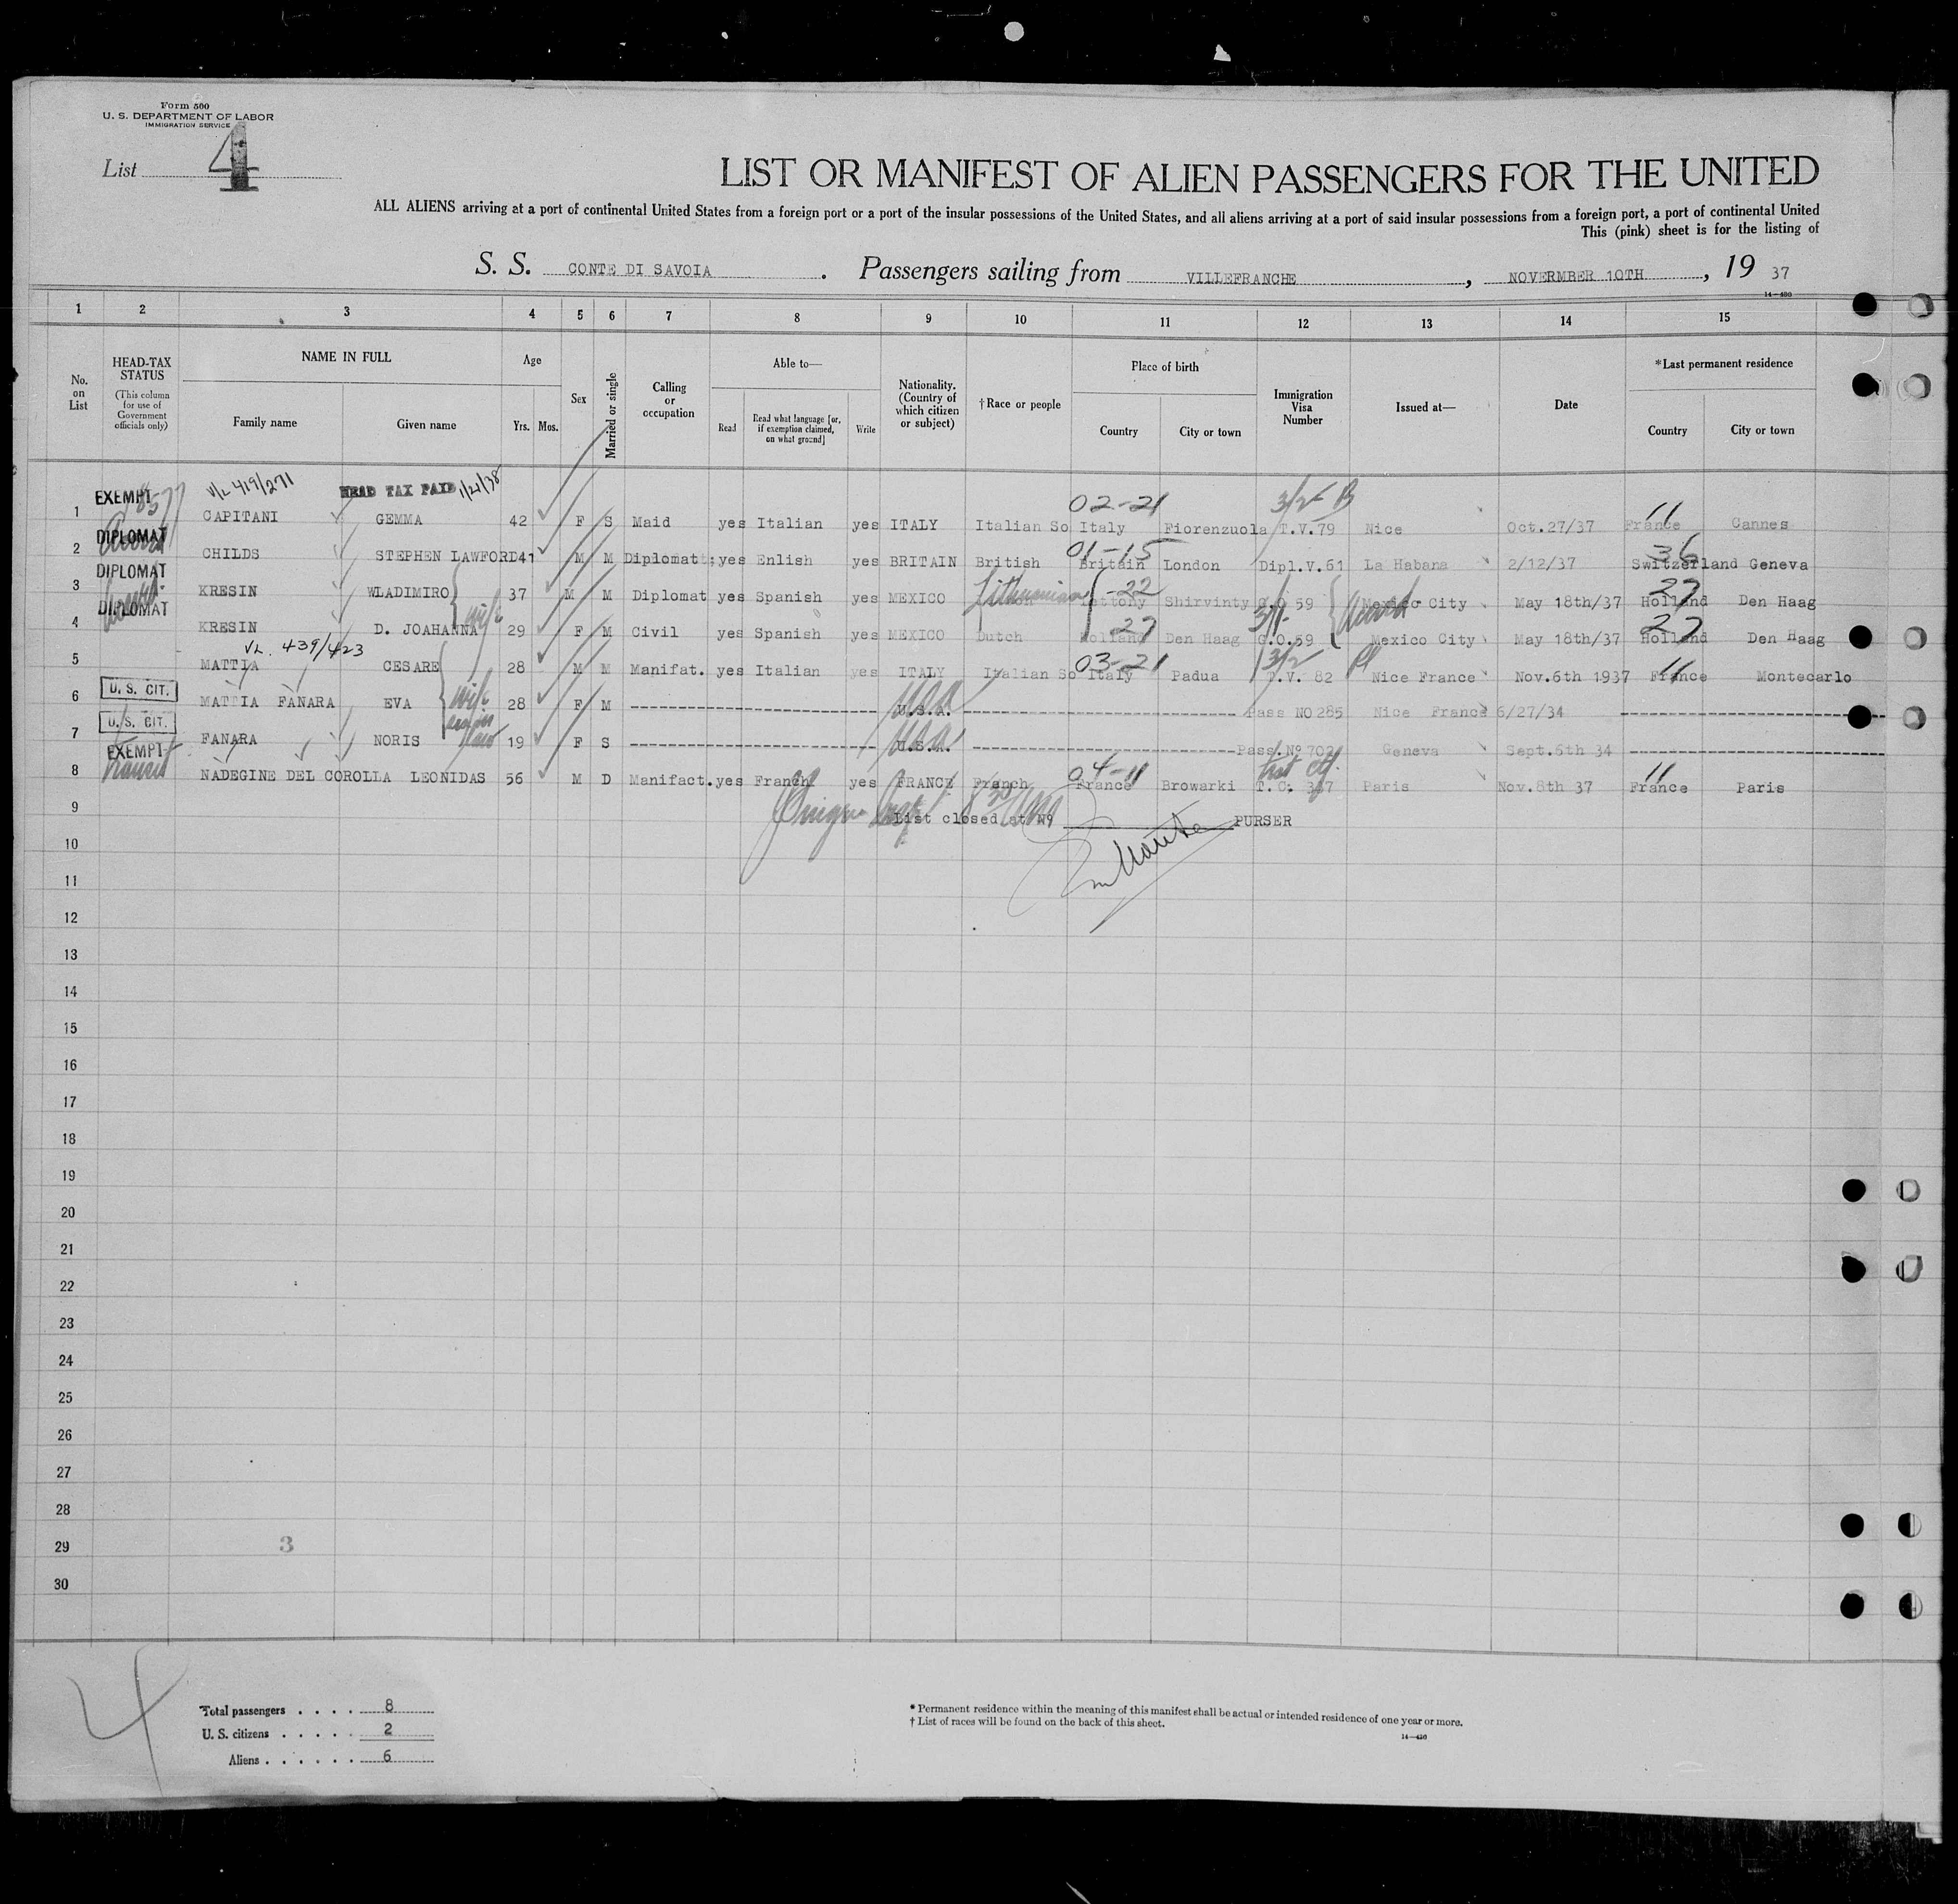 Form 500
U. S. DEPARTMENT OF LABOR
IMMIGRATION SERVICE
List 4
LIST OR MANIFEST OF ALIEN PASSENGERS FOR THE UNITED
ALL ALIENS arriving at a port of continental United States from a foreign port or a port of the insular possessions of the United States, and all aliens arriving at a port of said insular possessions from a foreign port, a port of continental United
This (pink) sheet is for the listing of
S. S. CONTE DI SAVOIA. Passengers sailing from VILLEFRANCHE, NOVERMBER 10TH, 19 37
14—480
1 2 3 4 5 6 7 8 9 10 11 12 13 14 15
No. on List
HEAD-TAX STATUS
(This column for use of Government officials only)
NAME IN FULL
Family name
Given name
Age
Yrs. Mos.
Sex
Married or single
Calling or occupation
Able to—
Read
Read what language [or, if exemption claimed, on what ground]
Write
Nationality. (Country of which citizen or subject)
†Race or people
Place of birth
Country
City or town
Immigration Visa Number
Issued at—
Date
*Last permanent residence
Country
City or town
V/L 419/271 HEAD TAX PAID 1/21/38 02-21 3/2 B 11
1 EXEMPT CAPITANI GEMMA 42 F S Maid yes Italian yes ITALY Italian So Italy Fiorenzuola T.V.79 Nice Oct.27/37 France Cannes
01-15 36
2 DIPLOMAT CHILDS STEPHEN LAWFORD 41 M M Diplomat yes Enlish yes BRITAIN British Britain London Dipl.V.61 La Habana 2/12/37 Switzerland Geneva
Lithunian -22 27
3 DIPLOMAT KRESIN WLADIMIRO 37 M M Diplomat yes Spanish yes MEXICO Shirvinty 59 Mexico City May 18th/37 Holland Den Haag
wife 27 3/1 27
4 DIPLOMAT KRESIN D. JOAHANNA 29 F M Civil yes Spanish yes MEXICO Dutch Holland Den Haag G.O.59 Mexico City May 18th/37 Holland Den Haag
VL. 439/423 03-21 3/2 11
5 MATTIA CESARE 28 M M Manifat. yes Italian yes ITALY Italian So Italy Padua T.V. 82 Nice France Nov.6th 1937 France Montecarlo
wife USA
6 U. S. CIT. MATTIA FANARA EVA 28 F M U.S.A. Pass NO 285 Nice France 6/27/34
USA
7 U. S. CIT. FANARA NORIS 19 F S U.S.A. Pass.Nº 702 Geneva Sept.6th 34
Transit 04-11 11
8 EXEMPT NADEGINE DEL COROLLA LEONIDAS 56 M D Manifact. yes Franch yes FRANCE French France Browarki T.C. 367 Paris Nov.8th 37 France Paris
9 List closed at Nº PURSER
10
11
12
13
14
15
16
17
18
19
20
21
22
23
24
25
26
27
28
29 3
30
4
Total passengers . . . . 8
U. S. citizens . . . . . 2
Aliens . . . . . . 6
* Permanent residence within the meaning of this manifest shall be actual or intended residence of one year or more.
† List of races will be found on the back of this sheet.
14—480